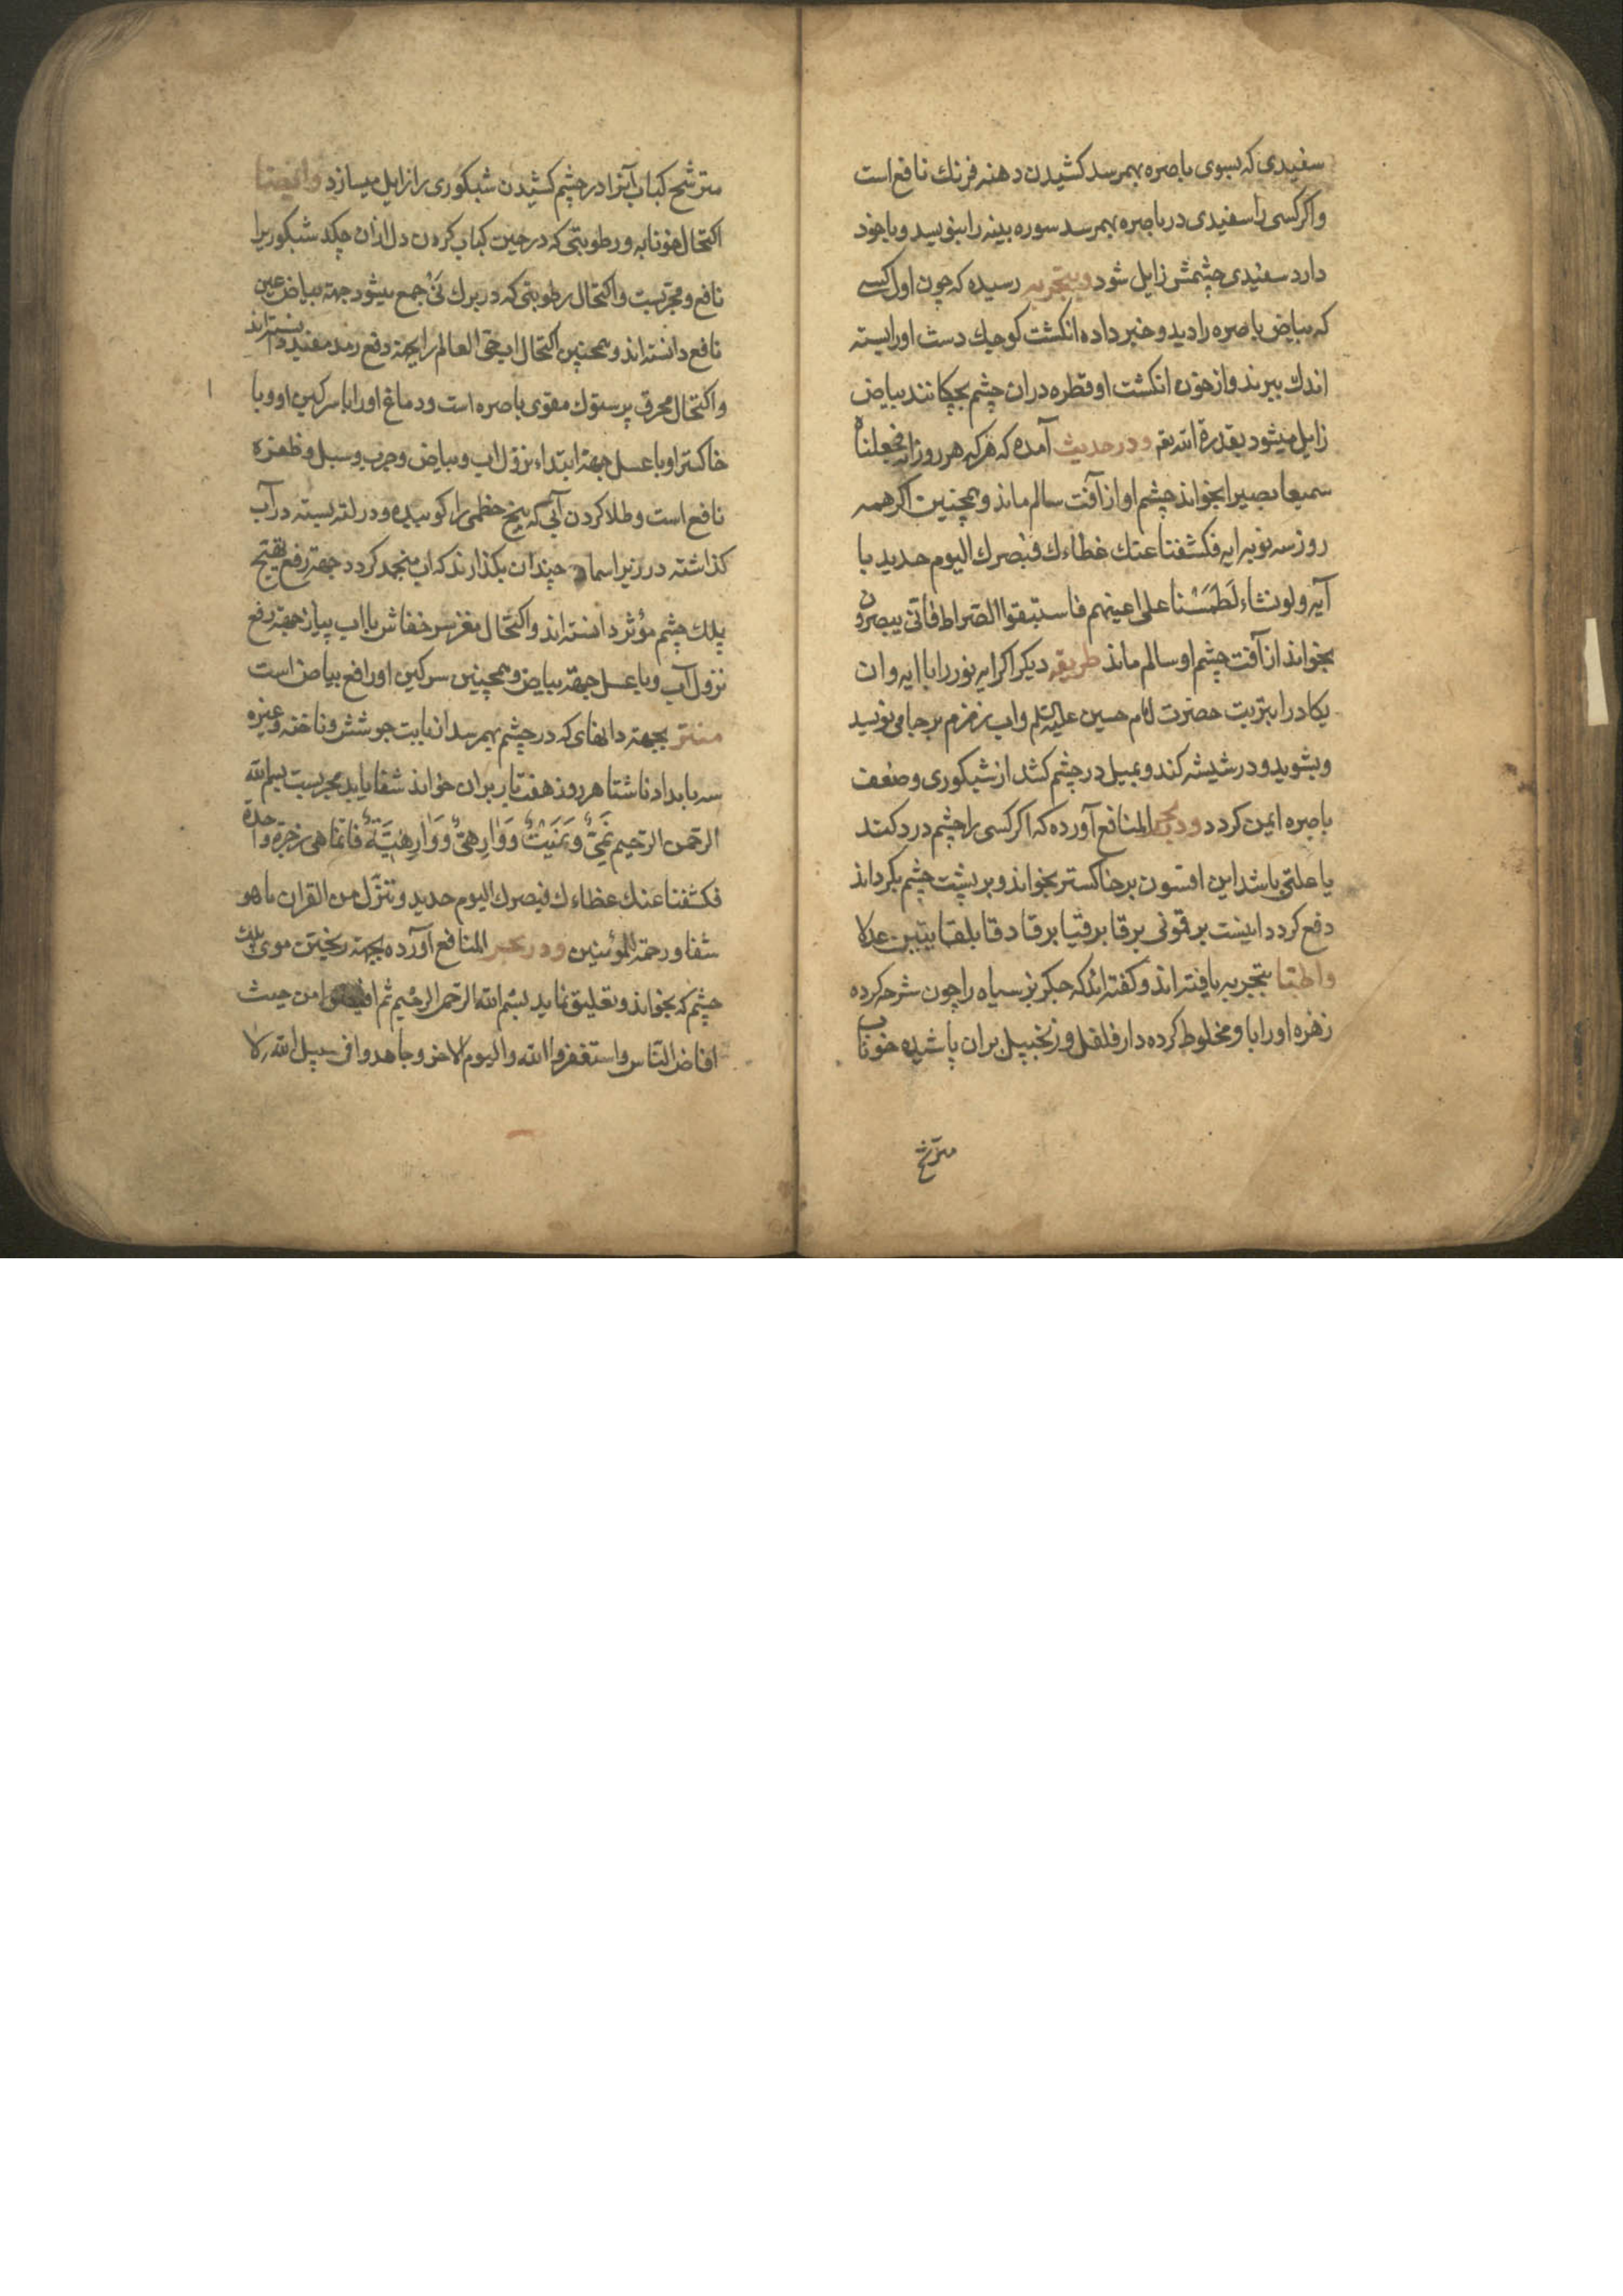 سفیدی که بسوی باصره بهمرسد کشیدن دهنه فرنك نافع است
واکر کسی را سفیدی در باصره بهمرسد سوره بینه را بنویسد و با خود
دارد سفیدی چشمش زایل شود وبتجربه رسیده که چون اول کسی
که بیاض باصره را دید و خبر داده انکشت کوچك دست او را بسته
اندك ببرند و از خون انکشت او قطره دران چشم بچکانند بیاض
زایل میشود بقدرة الله تعه ودر حدیث آمده که هرکه هر روز آیه فجعلناه
سمیعا بصیرا بخواند چشم او از آفت سالم ماند و همچنین اکر همه
روز سه نوبه ایه فکشفنا عنك غطاءك فبصرك الیوم حدید با
آیه ولو نشاء لَطَمَسْنا علی اعینهم فاستبقوا الصراط فانی یبصرون
بخواند از آفت چشم او سالم ماند طریقه دیکر اکر ایه نور را با ایه وان
یکاد را بتربت حضرت امام حسین علیه السلم واب زمزم بر جامی نویسد
وبشوید و در شیشه کند و بمیل در چشم کشد از شبکوری وضعف
باصره ایمن کردد ودر بحر المنافع آورده که اکر کسی را چشم درد کند
یا علتی باشد این افسون بر خاکستر بخواند و بر پشت چشم بکرداند
دفع کردد اینست برقونی برقا برقتیا برقا دقا بلقا
واطبّا بتجربه یافته اند و کفته اند که جکر بز سیاه را چون شرحه کرده
زهره او را با و مخلوط کرده دار فلفل و زنجبیل بران پاشیده خوناب
مترشح
مترشح کباب آنرا در چشم کشیدن شبکوری را زایل میسازد وایضا
اکتحال خونابه و رطوبتی که در حین کباب کردن دل ازان چکد شبکوریرا
نافع و مجربست و اکتحال رطوبتی که در برك نی جمع میشود جهة بیاض عین
نافع دانسته اند و همچنین اکتحال اب حی العالم را بجهة دفع رمد مفید دانسته اند
واکتحال محرق پرستوك مقوی باصره است و دماغ او را با سرکین او و با
خاکستر او با عسل جهة ابتداء نزول اب و بیاض و جرب و سبل و ظفره
نافع است و طلا کردن آبی که بیخ خطمی را کوبیده و در لته بسته در آب
کذاشته در زیر اسمان چندان بکذارند که اب منجمد کردد جهة رفع
پلك چشم مؤثر دانسته اند و اکتحال مغز سر خفاش با اب پیاز جهة رفع
نزول آب و با عسل جهة بیاض و همچنین سرکین او رافع بیاض است
منتر بجهة دانهای که در چشم بهمرسد از بابت جوشش و ناخنه و غیره
سه بامداد ناشتا هر روز هفت بار بران خواند شفا یابد مجربست بسم الله
الرحمن الرحیم فانما هی زجرة واحدة
فکشفنا عنك غطاءك فبصرك الیوم حدید و ننزّل من القران ما هو
شفا و رحمة للمؤمنین ودر بحر المنافع آورده بجهة ریختن موی پلك
چشم که بخواند و تعلیق نماید بسم الله الرحمن الرحیم ثم افیضوا من حیث
افاض الناس واستغفروا الله والیوم الاخر وجاهدوا فی سبیل الله لا